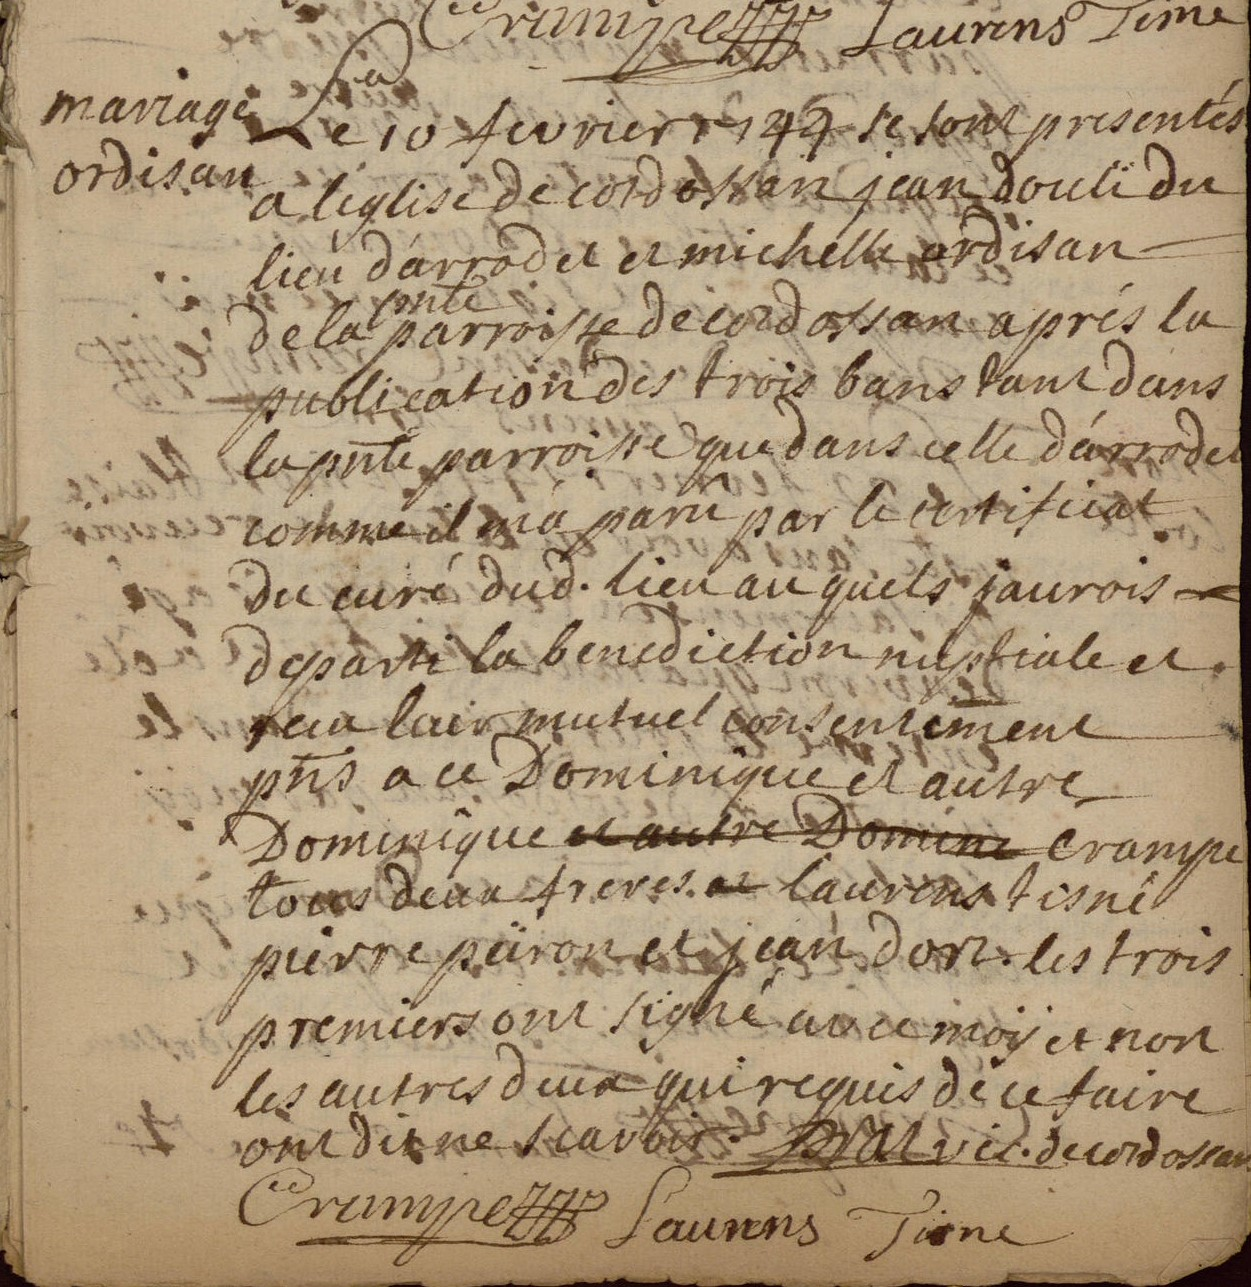 Crampe Laurens Tisne
mariage
ordisan
Le 10 fevrier se sont presentés
a leglise de cordossan jean douli du
lieu dárrodet et michelle ordisan
de la pnte parroisse de cordossan aprés la
publication des trois bans tant dans
la pnte parroisse que dans celle dárrodet
comme il má parú par le certificat
du curé dud. lieu au quels jaurois
departi la benediction nuptiale et
recu leur mutuel consentement
pnts a ce Dominique et autre
Dominique et autre Domine Crampe
tous deux freres. et laurens tisné
pierre peïron et jean dort. les trois
premiers ont signé avec moÿ et non
les autres deux qui requis de ce faire
ont dit ne scavoir. vic. de cordossan
Crampe Laurens Tisne